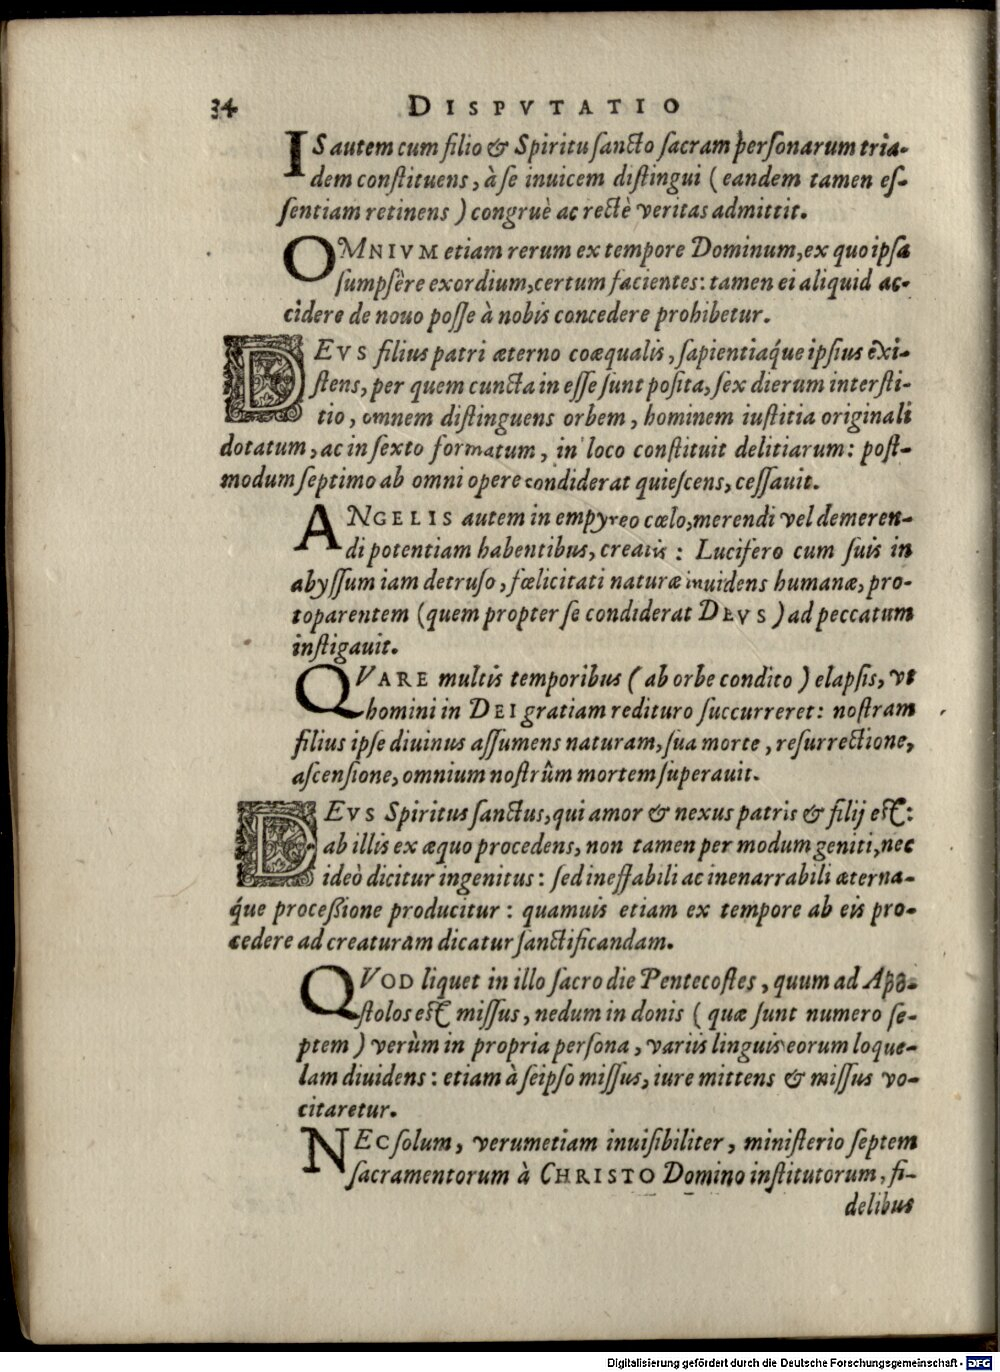 34 DISPVTATIO
IS autem cum filio & Spiritu sancto sacram personarum tria-
dem constituens, à se inuicem distingui (eandem tamen es-
sentiam retinens) congruè ac rectè veritas admittit.
OMNIVM etiam rerum ex tempore Dominum, ex quo ipsa
sumpsêre exordium, certum facientes: tamen ei aliquid ac-
cidere de nouo posse à nobis concedere prohibetur.
DEVS filius patri æterno coæqualis, sapientiáque ipsius exi-
stens, per quem cuncta in esse sunt posita, sex dierum intersti-
tio, omnem distinguens orbem, hominem iustitia originali
dotatum, ac in sexto formatum, in loco constituit delitiarum: post-
modum septimo ab omni opere condiderat quiescens, cessauit.
ANGELIS autem in empyreo cœlo, merendi vel demeren-
di potentiam habentibus, creatis: Lucifero cum suis in
abyssum iam detruso, fœlicitati naturæ inuidens humanæ, pro-
toparentem (quem propter se condiderat DEVS) ad peccatum
instigauit.
QVARE multis temporibus (ab orbe condito) elapsis, vt
homini in DEI gratiam redituro succurreret: nostram
filius ipse diuinus assumens naturam, sua morte, resurrectione,
ascensione, omnium nostrûm mortem superauit.
DEVS Spiritus sanctus, qui amor & nexus patris & filij est:
ab illis ex æquo procedens, non tamen per modum geniti, nec
ideò dicitur ingenitus: sed ineffabili ac inenarrabili æterna-
q́ue processione producitur: quamuis etiam ex tempore ab eis pro-
cedere ad creaturam dicatur sanctificandam.
QVOD liquet in illo sacro die Pentecostes, quum ad Apo-
stolos est missus, nedum in donis (quæ sunt numero se-
ptem) verùm in propria persona, variis linguis eorum loque-
lam diuidens: etiam à seipso missus, iure mittens & missus vo-
citaretur.
NEC solum, verumetiam inuisibiliter, ministerio septem
sacramentorum à CHRISTO Domino institutorum, fi-
delibus
Digitalisierung gefördert durch die Deutsche Forschungsgemeinschaft - DFG